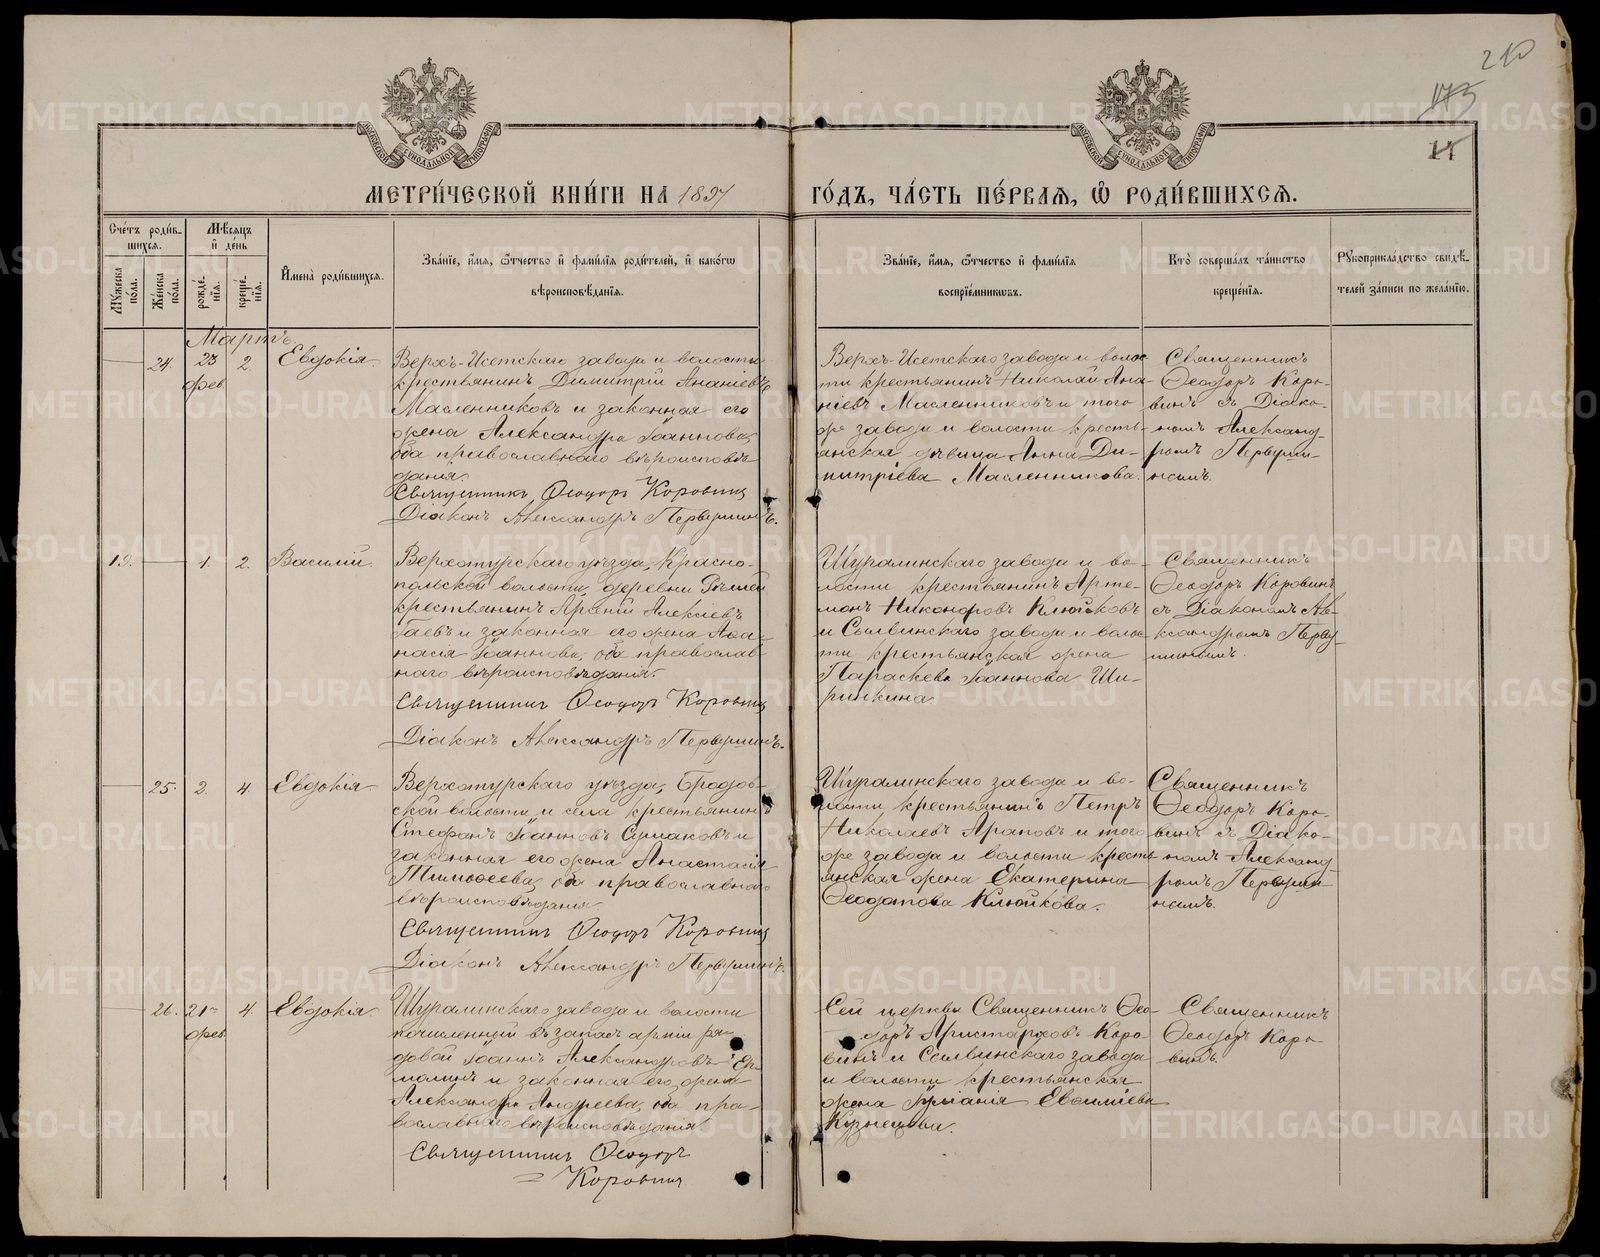 210
175
14
МОСКОВСКОЙ СѴНОДАЛЬНОЙ ТИПОГРАФІИ
МОСКОВСКОЙ СѴНОДАЛЬНОЙ ТИПОГРАФІИ
МЕТРИ́ЧЕСКОЙ КНИ́ГИ НА 1897
ГО́ДЪ, ЧА́СТЬ ПЕ́РВАѦ, Ѡ҆ РОДИ́ВШИХСѦ.
Сче́тъ роди́в-
шихсѧ.
Мѣ́сѧцъ
и҆ де́нь
Мꙋ́жеска
по́ла.
Же́нска
по́ла.
рожде́-
нїѧ.
креще́-
нїѧ.
И҆мена̀ роди́вшихсѧ.
Зва́нїе, и҆́мѧ, ѻ҆́тчество и҆ фами́лїѧ роди́телей, и҆ како́гѡ
вѣроисповѣ́данїѧ.
Зва́нїе, и҆́мѧ, ѻ҆́тчество и҆ фами́лїѧ
воспрїе́мникѡвъ.
Кто̀ соверша́лъ та́инство
креще́нїѧ.
Рꙋкоприкла́дство свидѣ́-
телей за́писи по жела́нїю.
Мартъ
24. 23 фев. 2. Евдокія.
Верхъ-Исетскаго завода и волости
крестьянинъ Димитрій Ананіевъ
Масленниковъ и законная его
жена Александра Іоаннова,
оба православнаго вѣроисповѣ-
данія.
Священникъ Ѳеодоръ Коровинъ
Діаконъ Александръ Первушинъ.
Верхъ-Исетскаго завода и волос-
ти крестьянинъ Николай Ана-
ніевъ Масленниковъ и того
же завода и волости кресть-
янская дѣвица Анна Ди-
митріева Масленникова.
Священникъ
Ѳеодоръ Коро-
винъ съ Діако-
номъ Александ-
ромъ Первуши-
нымъ.
19. 1. 2. Василій.
Верхотурскаго уѣзда, Красно-
польской волости, деревни
крестьянинъ Алексіевъ
Гаевъ и законная его жена Аѳа-
насія Іоаннова, оба православ-
наго вѣроисповѣданія.
Священникъ Ѳеодоръ Коровинъ
Діаконъ Александръ Первушинъ.
Шуралинскаго завода и во-
лости крестьянинъ Арте-
монъ Никаноровъ Клюйковъ
и Сылвинскаго завода и волос-
ти крестьянская жена
Параскева Іоаннова Ши-
ринкина.
Священникъ
Ѳеодоръ Коровинъ
съ Діакономъ Але-
ксандромъ Перву-
шинымъ.
25. 2. 4. Евдокія.
Верхотурскаго уѣзда, Бродов-
ской волости и села крестьянинъ
Стефанъ Іоанновъ Сушаковъ и
законная его жена Анастасія
Тимоѳеева, оба православнаго
вѣроисповѣданія.
Священникъ Ѳеодоръ Коровинъ
Діаконъ Александръ Первушинъ.
Шуралинскаго завода и во-
лости крестьянинъ Петръ
Николаевъ Араповъ и того
же завода и волости кресть-
янская жена Екатерина
Ѳеодотова Клюйкова.
Священникъ
Ѳеодоръ Коро-
винъ съ Діако-
номъ Александ-
ромъ Первуши-
нымъ.
26. 21 фев. 4. Евдокія.
Шуралинскаго завода и волости
зачисленный въ запасъ арміи ря-
довой Іоаннъ Александровъ Ер-
молинъ и законная его жена
Александра Андреева, оба пра-
вославнаго вѣроисповѣданія.
Священникъ Ѳеодоръ
Коровинъ
Сей церкви Священникъ Ѳео-
доръ Аристарховъ Коро-
винъ и Сылвинскаго завода
и волости крестьянская
жена Іуліанія Евѳиміева
Кузнецова.
Священникъ
Ѳеодоръ Коро-
винъ.
METRIKI.GASO-URAL.RU